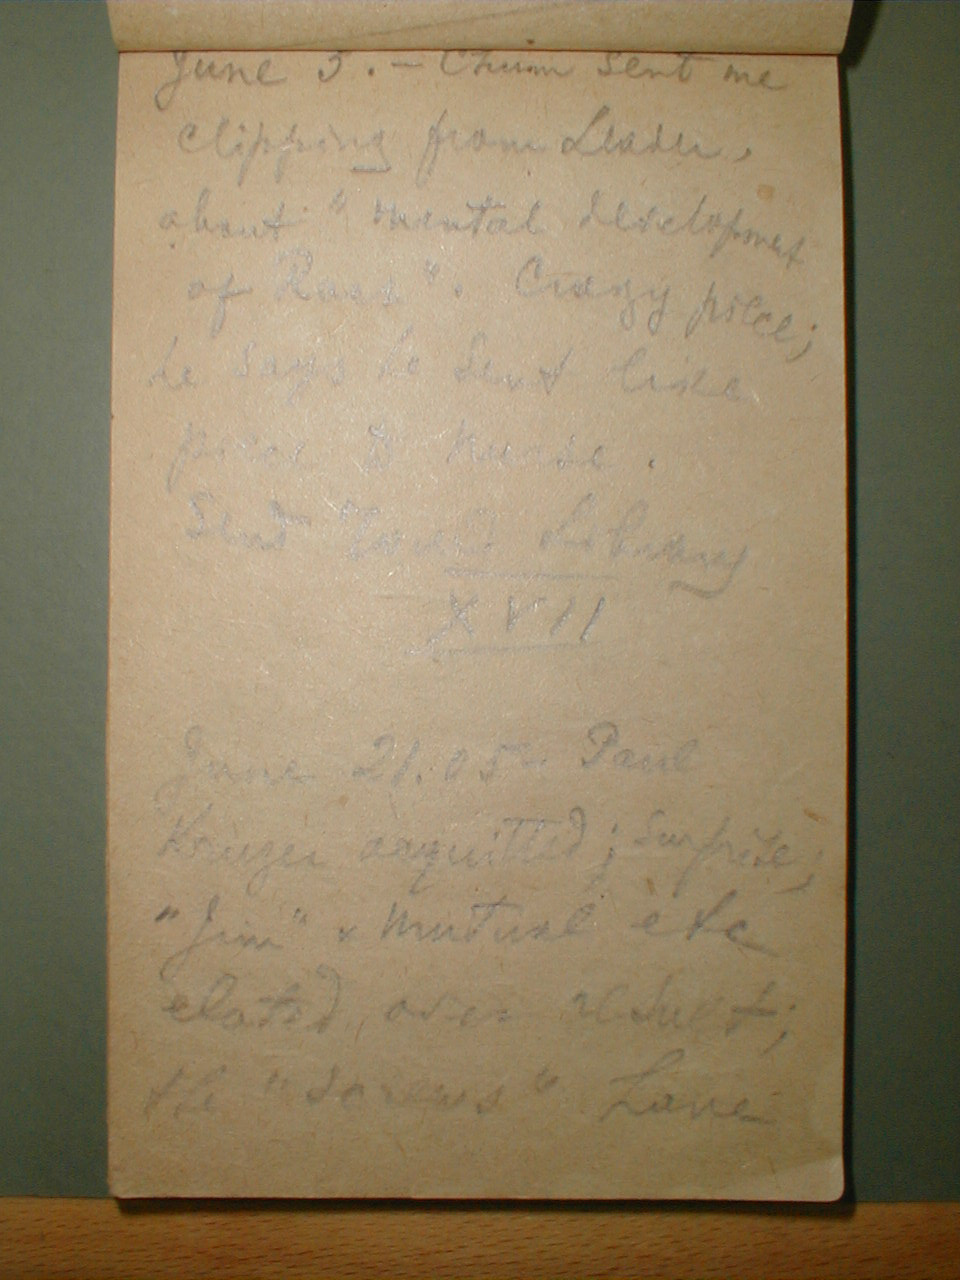 June 3. – Chum sent me
clipping from Leader,
about "mental development
of Race". Crazy piece;
he says he sent like
piece to Nurse.
Send Library
XVII
June 21. 05. Paul
Kruger acquitted; surprise,
"Jim" & Mutual etc
elated over result;
the "screws" have